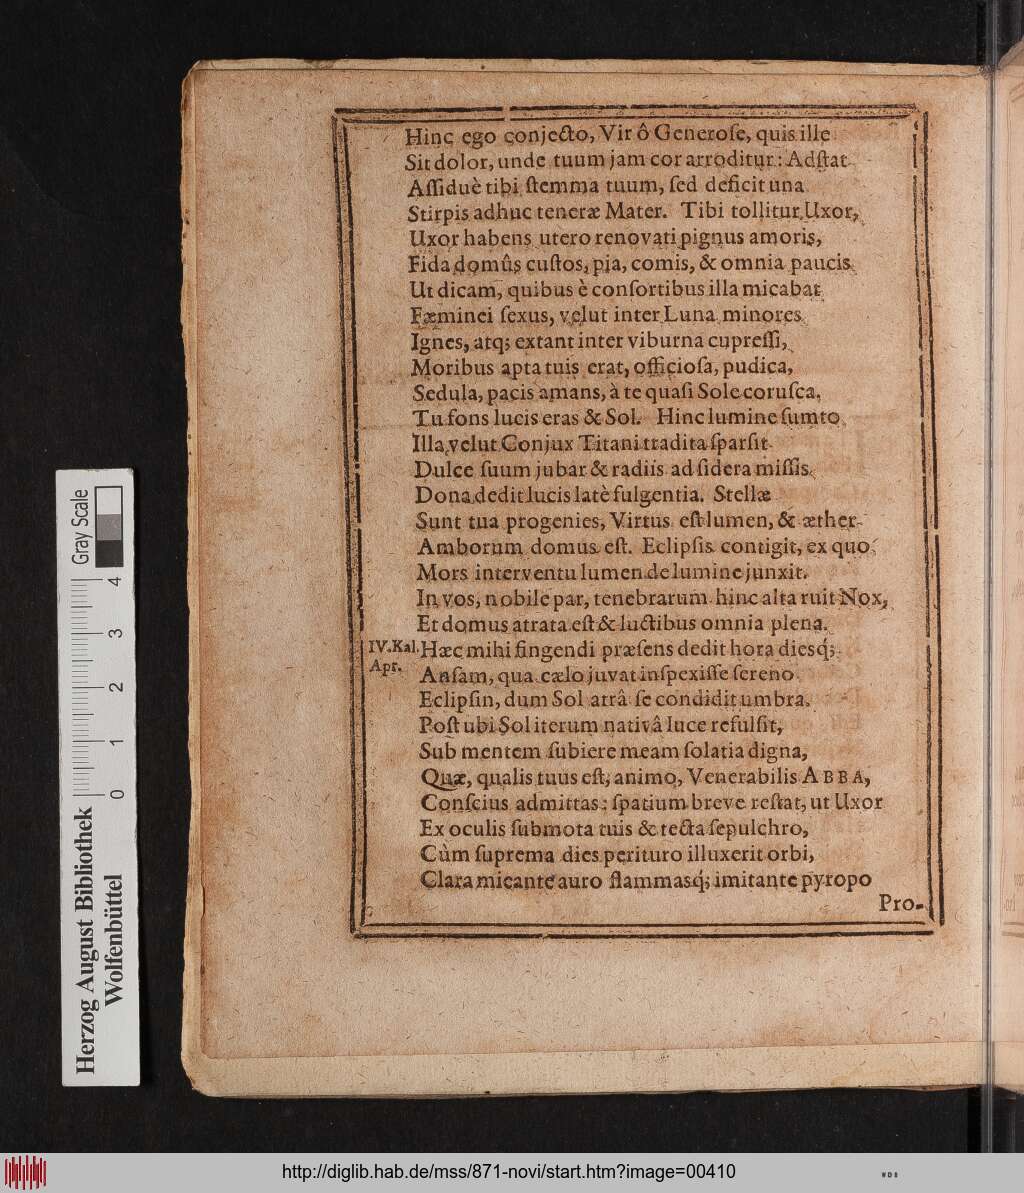 Hinc ego conjecto, Vir ô Generoſe, quis ille
Sit dolor, unde tuum jam cor arroditur: Adſtat
Aſſiduè tibi ſtemma tuum, ſed deficit una
Stirpis adhuc teneræ Mater. Tibi tollitur Uxor,
Uxor habens utero renovati pignus amoris,
Fida domûs cuſtos, pia, comis, & omnia paucis
Ut dicam, quibus è conſortibus illa micabat
Fæminei ſexus, velut inter Luna minores
Ignes, atq; extant inter viburna cupreſſi,
Moribus apta tuis erat, officioſa, pudica,
Sedula, pacis amans, à te quaſi Sole coruſca.
Tu fons lucis eras & Sol. Hinc lumine ſumto
Illa, velut Conjux Titani tradita ſparſit
Dulce ſuum jubar & radiis ad ſidera miſſis
Dona dedit lucis latè fulgentia. Stellæ
Sunt tua progenies, Virtus eſt lumen, & æther
Amborum domus eſt. Eclipſis contigit, ex quo
Mors interventu lumen de lumine junxit.
In vos, nobile par, tenebrarum hinc alta ruit Nox,
Et domus atrata eſt & luctibus omnia plena.
IV. Kal. Apr.
Hæc mihi fingendi præſens dedit hora diesq́;
Anſam, qua cælo juvat inſpexiſſe ſereno
Eclipſin, dum Sol atrâ ſe condidit umbra.
Poſt ubi Sol iterum nativâ luce refulſit,
Sub mentem ſubiere meam ſolatia digna,
Quæ, qualis tuus eſt, animo, Venerabilis ABBA,
Conſcius admittas: ſpatium breve reſtat, ut Uxor
Ex oculis ſubmota tuis & tecta ſepulchro,
Cùm ſuprema dies perituro illuxerit orbi,
Clara micante auro flammasq́; imitante pyropo
Pro-
Herzog August Bibliothek
Wolfenbüttel
0 1 2 3 4
Gray Scale
http://diglib.hab.de/mss/871-novi/start.htm?image=00410
WDB